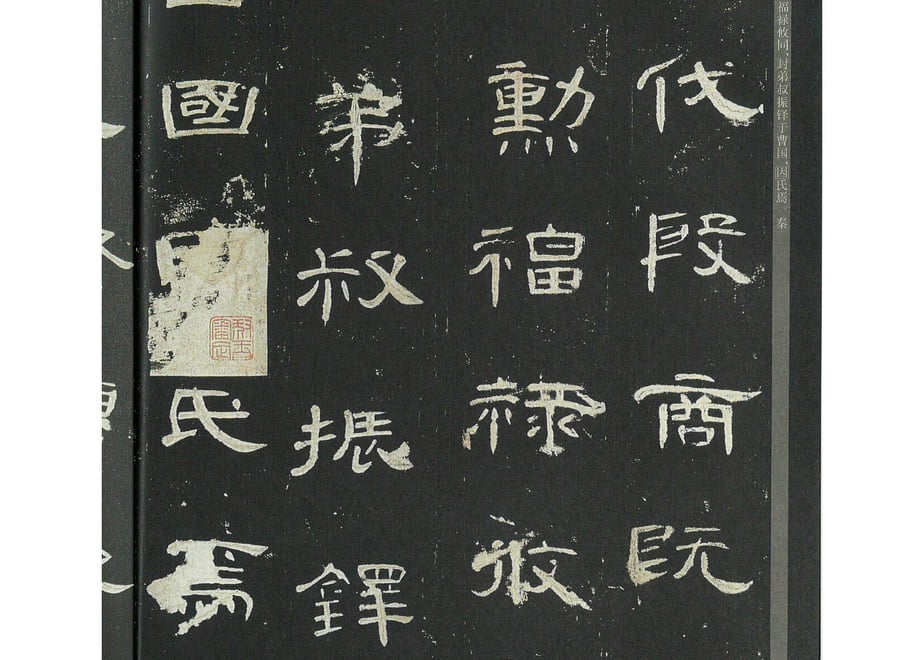 福禄攸同，封弟叔振铎于曹国，因氏焉。秦
伐殷商既
勲福禄攸
弟叔振鐸
國氏焉